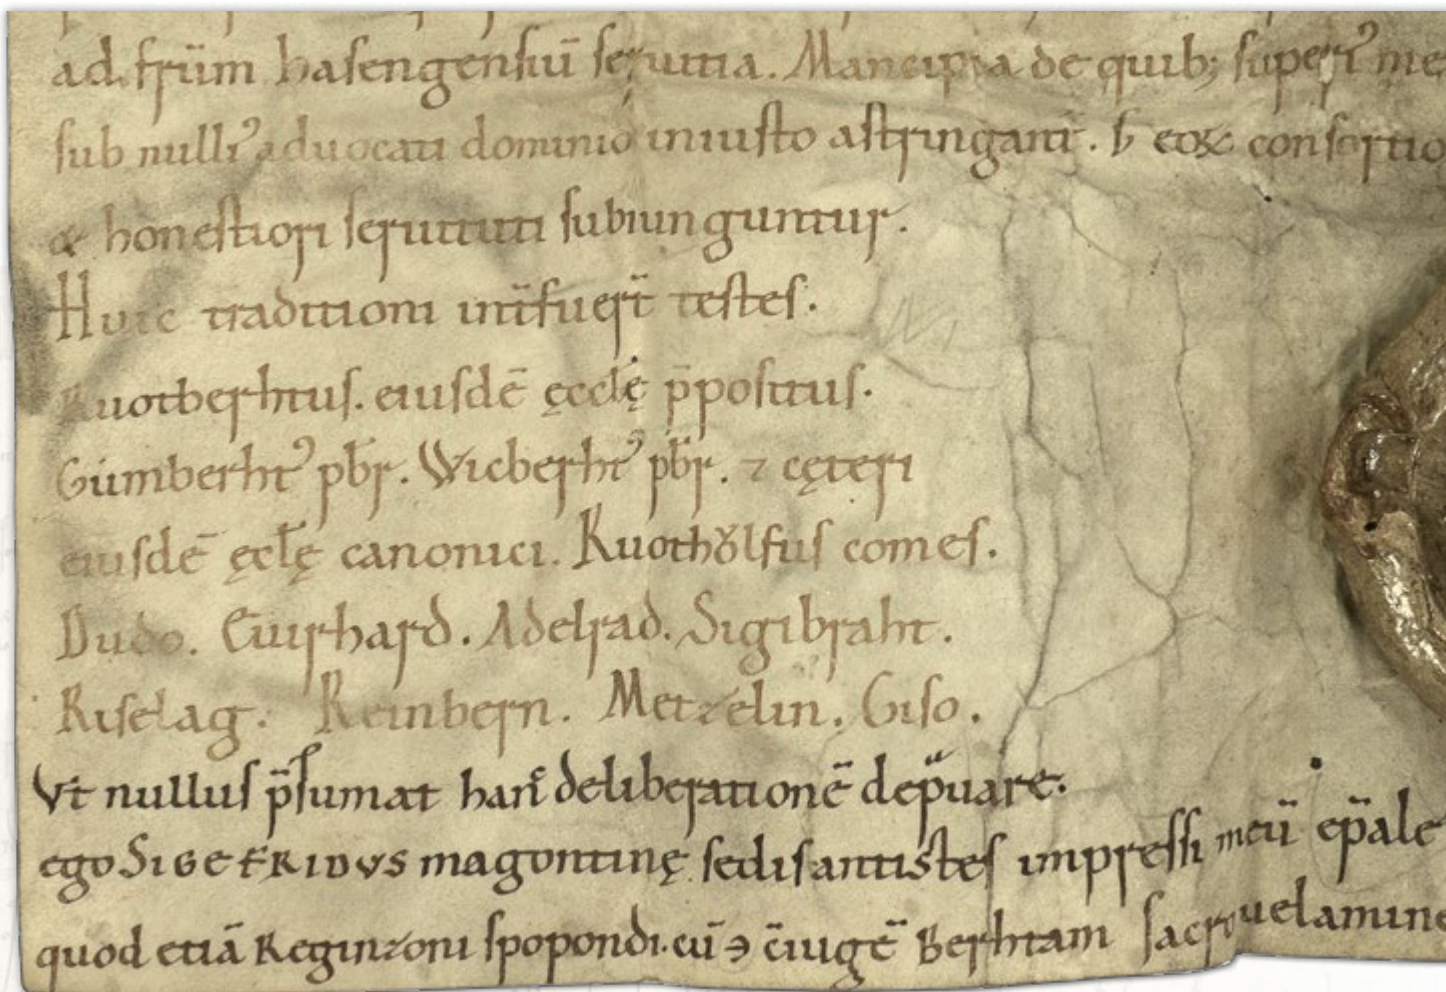 ad frūm hasengensiū seruitia. Mancipia de quib; superi᾽ me
sub nulli᾽ aduocati dominio iniusto astringant̄. ƀ eoꝝ consortio
& honestiori seruituti subiunguntur.
Huic traditioni int̄fuer̄t testes.
Ruotberhtus. eiusdē ęcclę p̄positus.
Gumberht᾽ pb̄r. Wicberht᾽ pb̄r. ⁊ cęteri
eiusdē ęcłę canonici. Ruotholfus comes.
Dudo. Euirhard. Adelrad. Sigibraht.
Riselag. Reinbern. Metzelin. Giso.
Vt nullus p̄sumat hanc deliberationē dep̄uare.
ego SIGEFRIDVS magontinę sedis antistes impressi meū ep̄ale
quod etiā Reginzoni spopondi. cū ꝯ c̄iugē Berhtam sacro uelamine